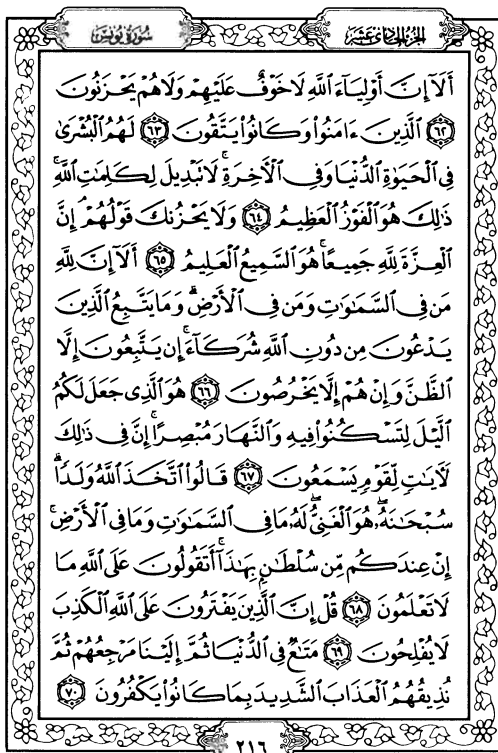 الجزء الحادي عشر
سورة يونس
أَلَآ إِنَّ أَوْلِيَآءَ ٱللَّهِ لَا خَوْفٌ عَلَيْهِمْ وَلَا هُمْ يَحْزَنُونَ
٦٢ ٱلَّذِينَ ءَامَنُوا۟ وَكَانُوا۟ يَتَّقُونَ ٦٣ لَهُمُ ٱلْبُشْرَىٰ
فِى ٱلْحَيَوٰةِ ٱلدُّنْيَا وَفِى ٱلْءَاخِرَةِ ۚ لَا تَبْدِيلَ لِكَلِمَٰتِ ٱللَّهِ ۚ
ذَٰلِكَ هُوَ ٱلْفَوْزُ ٱلْعَظِيمُ ٦٤ وَلَا يَحْزُنكَ قَوْلُهُمْ ۘ إِنَّ
ٱلْعِزَّةَ لِلَّهِ جَمِيعًا ۚ هُوَ ٱلسَّمِيعُ ٱلْعَلِيمُ ٦٥ أَلَآ إِنَّ لِلَّهِ
مَن فِى ٱلسَّمَٰوَٰتِ وَمَن فِى ٱلْأَرْضِ ۗ وَمَا يَتَّبِعُ ٱلَّذِينَ
يَدْعُونَ مِن دُونِ ٱللَّهِ شُرَكَآءَ ۚ إِن يَتَّبِعُونَ إِلَّا
ٱلظَّنَّ وَإِنْ هُمْ إِلَّا يَخْرُصُونَ ٦٦ هُوَ ٱلَّذِى جَعَلَ لَكُمُ
ٱلَّيْلَ لِتَسْكُنُوا۟ فِيهِ وَٱلنَّهَارَ مُبْصِرًا ۚ إِنَّ فِى ذَٰلِكَ
لَءَايَٰتٍ لِّقَوْمٍ يَسْمَعُونَ ٦٧ قَالُوا۟ ٱتَّخَذَ ٱللَّهُ وَلَدًا ۗ
سُبْحَٰنَهُۥ ۖ هُوَ ٱلْغَنِىُّ ۖ لَهُۥ مَا فِى ٱلسَّمَٰوَٰتِ وَمَا فِى ٱلْأَرْضِ ۚ
إِنْ عِندَكُم مِّن سُلْطَٰنٍۭ بِهَٰذَآ ۚ أَتَقُولُونَ عَلَى ٱللَّهِ مَا
لَا تَعْلَمُونَ ٦٨ قُلْ إِنَّ ٱلَّذِينَ يَفْتَرُونَ عَلَى ٱللَّهِ ٱلْكَذِبَ
لَا يُفْلِحُونَ ٦٩ مَتَٰعٌ فِى ٱلدُّنْيَا ثُمَّ إِلَيْنَا مَرْجِعُهُمْ ثُمَّ
نُذِيقُهُمُ ٱلْعَذَابَ ٱلشَّدِيدَ بِمَا كَانُوا۟ يَكْفُرُونَ ٧٠
٢١٦